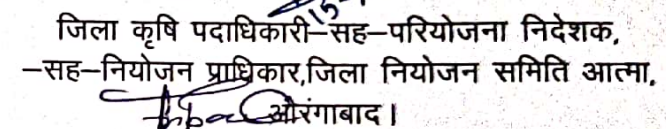 जिला कृषि पदाधिकारी–सह–परियोजना निदेशक,
–सह–नियोजन प्राधिकार,जिला नियोजन समिति आत्मा,
औरंगाबाद।